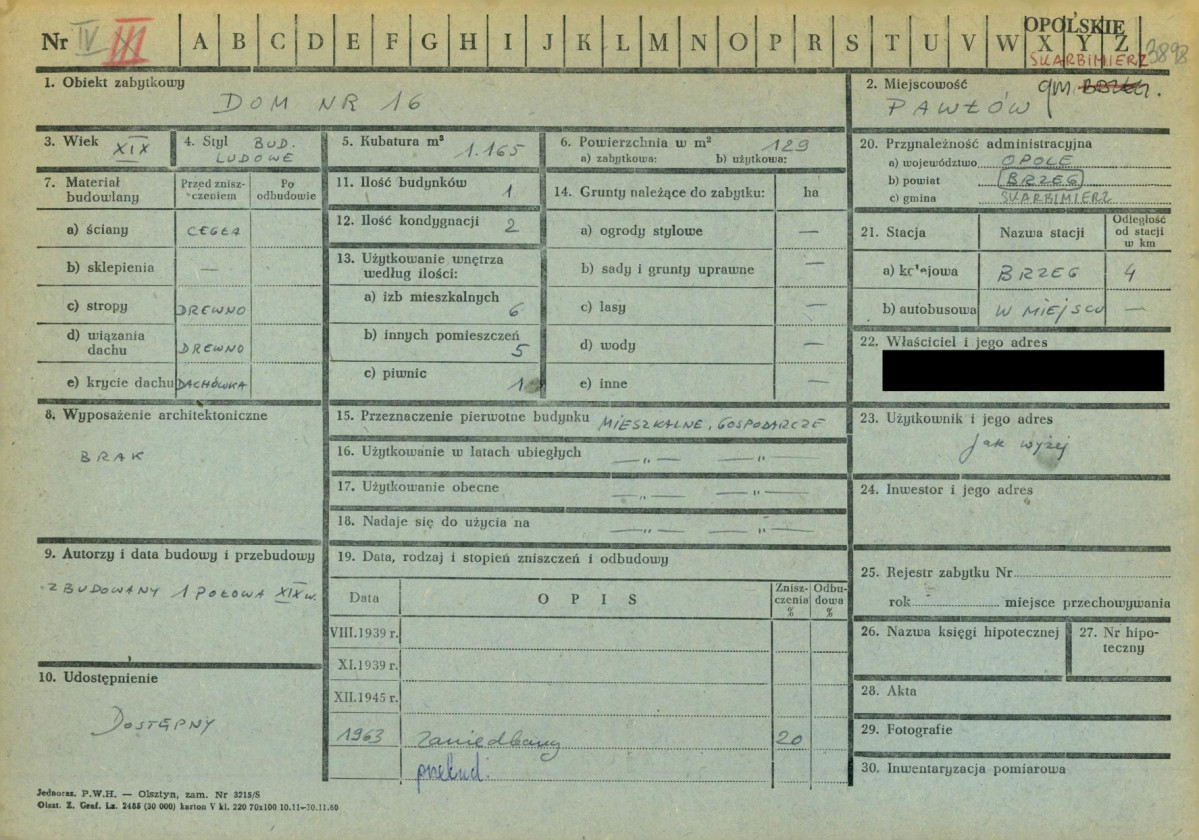 Nr IV III A B C D E F G H I J K L M N O P R S T U V W X Y Z
OPOLSKIE
SKARBIMIERZ 3898
1. Obiekt zabytkowy
DOM NR 16
2. Miejscowość
gm.
PAWŁÓW
3. Wiek XIX
4. Styl BUD.
LUDOWE
5. Kubatura m³ 1.165
6. Powierzchnia w m² 129
a) zabytkowa: b) użytkowa:
7. Materiał
budowlany
Przed znisz-
czeniem
Po
odbudowie
a) ściany CEGŁA
b) sklepienia —
c) stropy DREWNO
d) wiązania
dachu DREWNO
e) krycie dachu DACHÓWKA
8. Wyposażenie architektoniczne
BRAK
9. Autorzy i data budowy i przebudowy
ZBUDOWANY 1 POŁOWA XIX w.
10. Udostępnienie
DOSTĘPNY
11. Ilość budynków 1
12. Ilość kondygnacji 2
13. Użytkowanie wnętrza
według ilości:
a) izb mieszkalnych
6
b) innych pomieszczeń
5
c) piwnic
1
14. Grunty należące do zabytku: ha
a) ogrody stylowe —
b) sady i grunty uprawne —
c) lasy —
d) wody —
e) inne —
15. Przeznaczenie pierwotne budynku MIESZKALNE, GOSPODARCZE
16. Użytkowanie w latach ubiegłych — „ — — „ —
17. Użytkowanie obecne — „ — — „ —
18. Nadaje się do użycia na — „ — — „ —
19. Data, rodzaj i stopień zniszczeń i odbudowy
Data OPIS
Znisz-
czenia
%
Odbu-
dowa
%
VIII.1939 r.
XI.1939 r.
XII.1945 r.
1963 zaniedbany 20
przebud.
20. Przynależność administracyjna
a) województwo OPOLE
b) powiat BRZEG
c) gmina SKARBIMIERZ
21. Stacja Nazwa stacji
Odległość
od stacji
w km
a) kolejowa BRZEG 4
b) autobusowa W MIEJSCU —
22. Właściciel i jego adres
23. Użytkownik i jego adres
jak wyżej
24. Inwestor i jego adres
25. Rejestr zabytku Nr
rok miejsce przechowywania
26. Nazwa księgi hipotecznej
27. Nr hipo-
teczny
28. Akta
29. Fotografie
30. Inwentaryzacja pomiarowa
Jednoraz. P.W.H. — Olsztyn, zam. Nr 3215/S
Olszt. Z. Graf. Lz. 2485 (30 000) karton V kl. 220 70x100 10.11—30.11.60